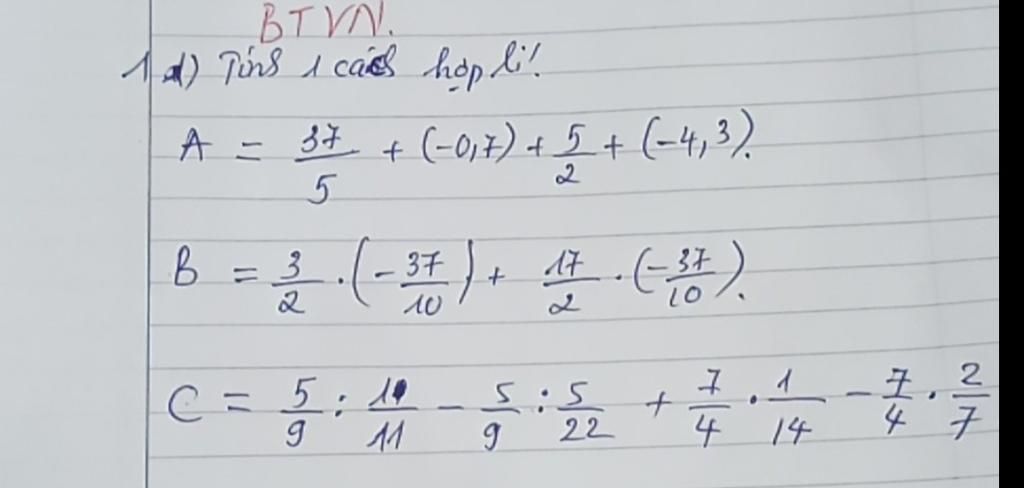 BTVN.
1 a) Tính 1 cách hợp lí!
A = 37/5 + (-0,7) + 5/2 + (-4,3).
B = 3/2 . (-37/10) + 17/2 . (-37/10).
C = 5/9 : 1/11 - 5/9 : 5/22 + 7/4 . 1/14 - 7/4 . 2/7